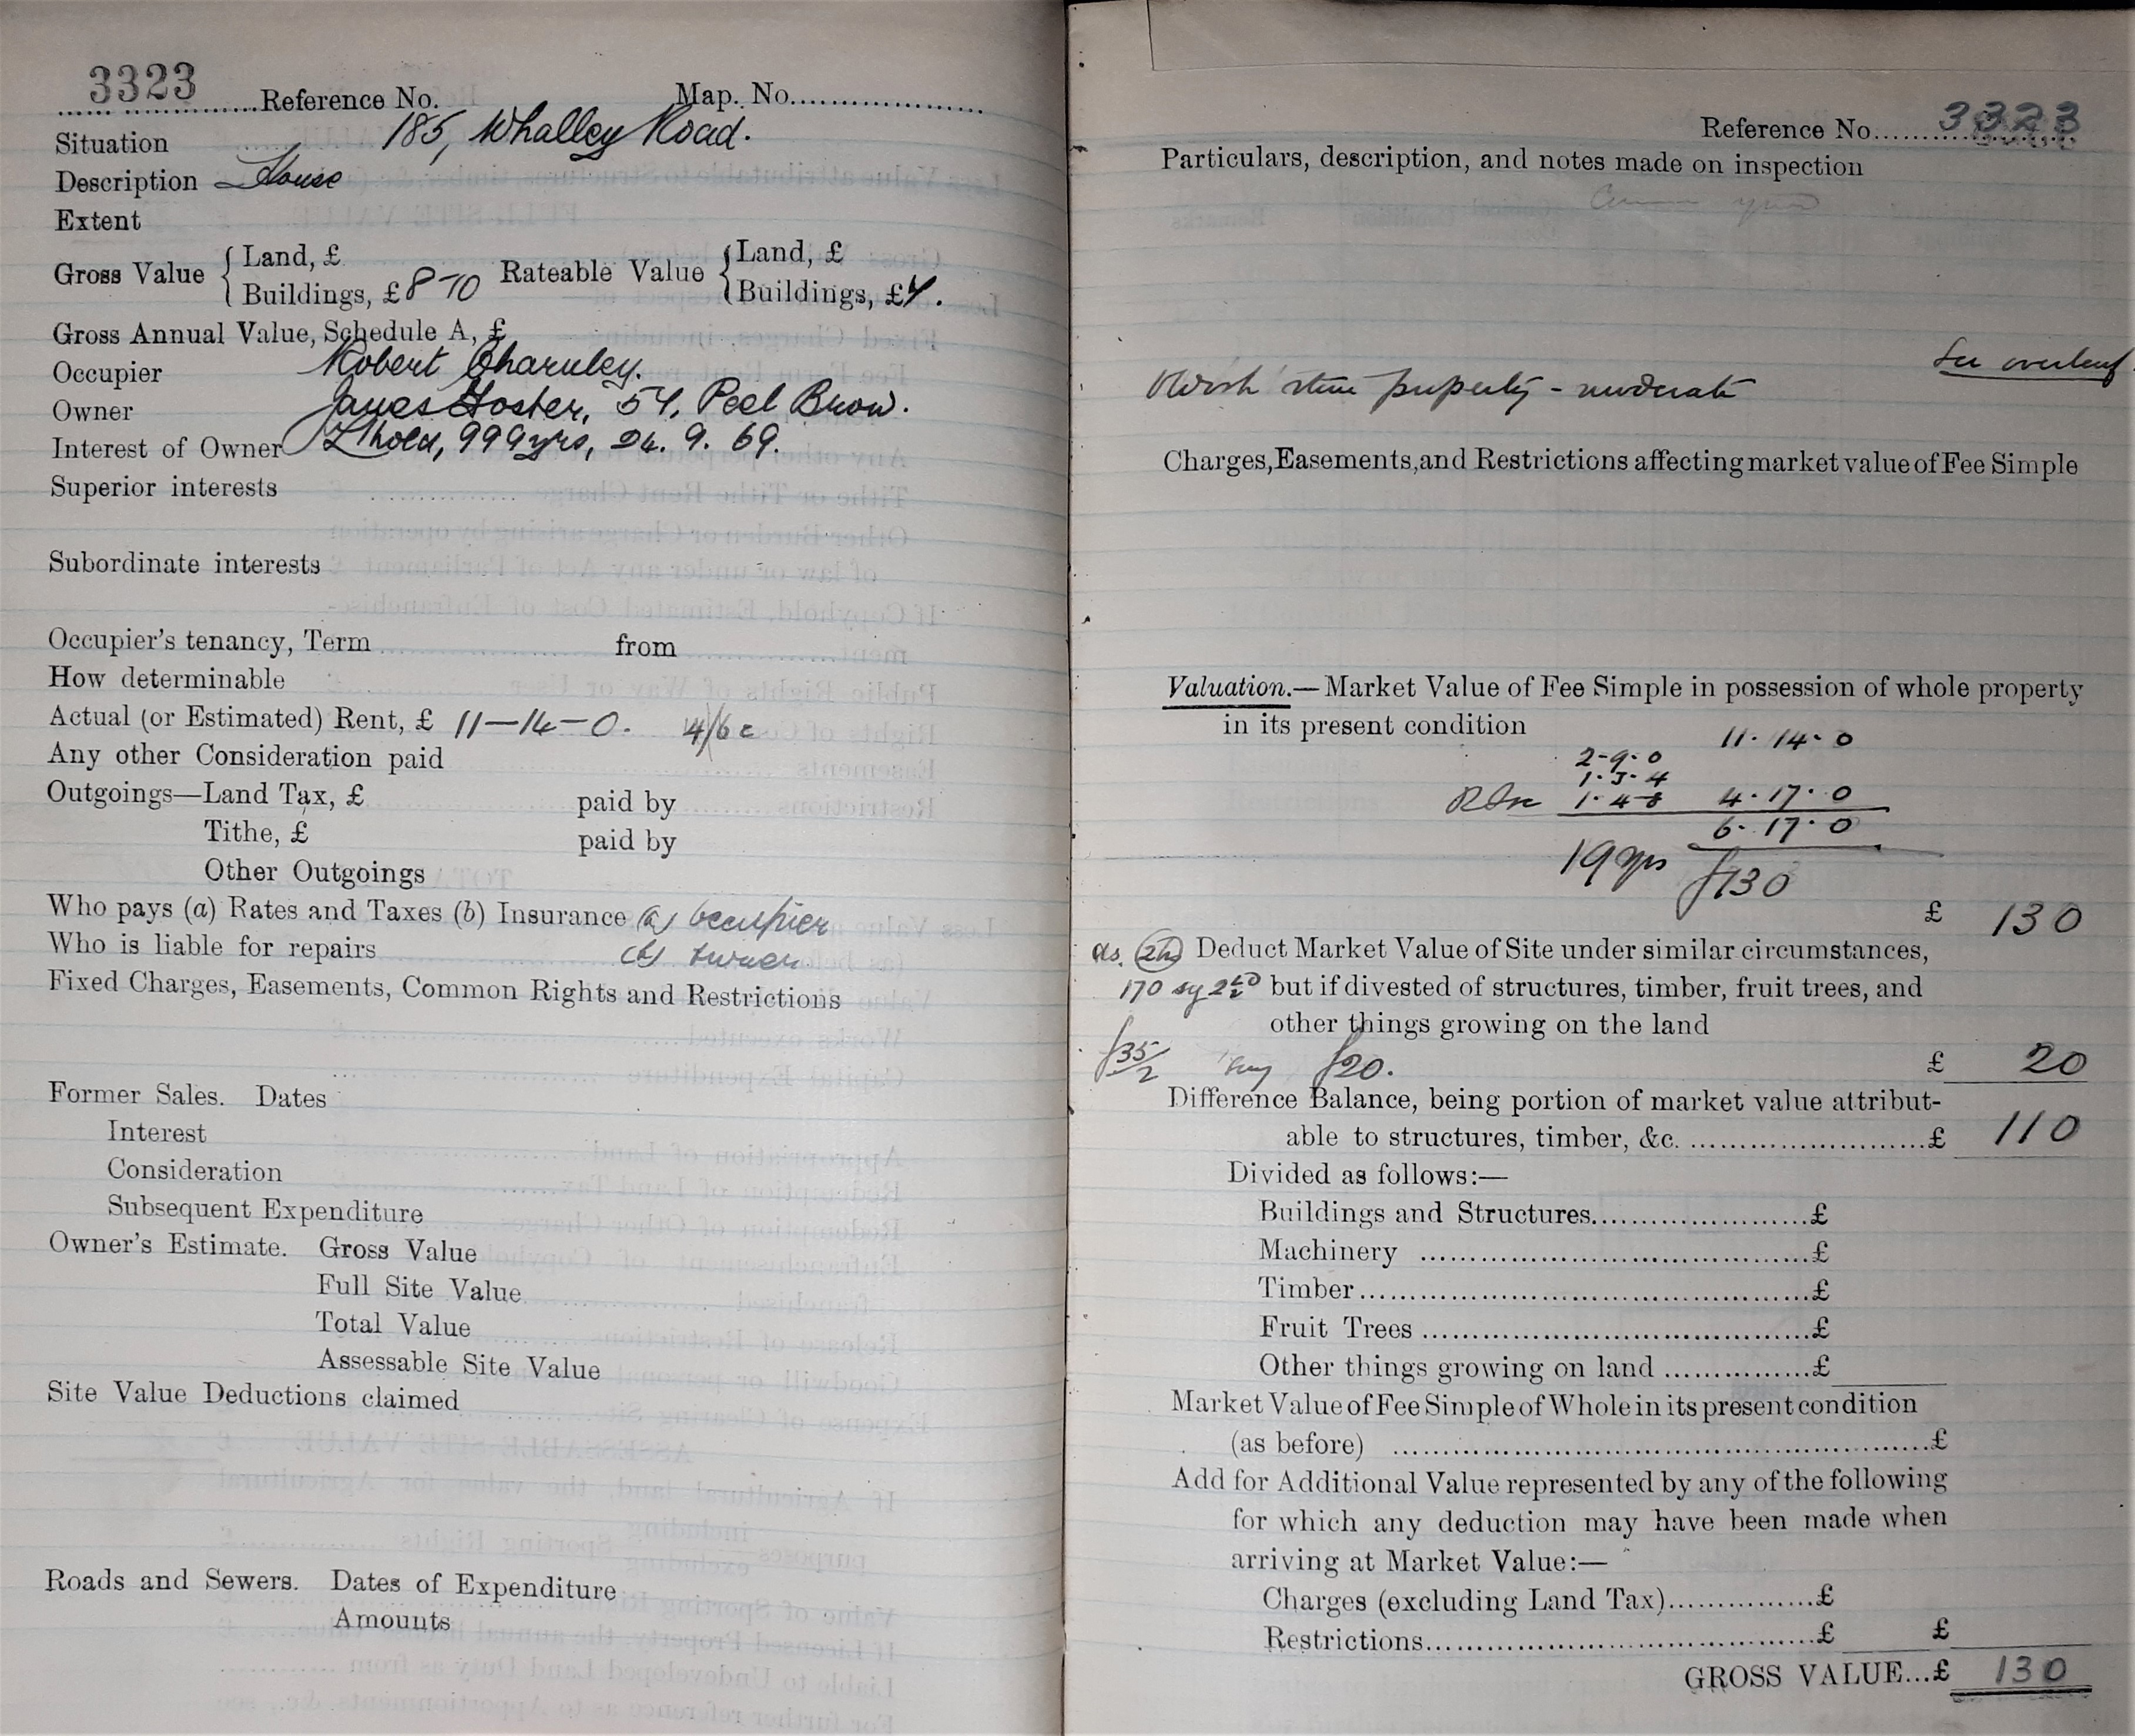 3323 Reference No. Map. No.
Situation 185, Whalley Road.
Description House
Extent
Gross Value { Land, £ Rateable Value { Land, £
Buildings, £ 8-10 Buildings, £
Gross Annual Value, Schedule A, £
Occupier Robert Charnley.
Owner James Foster, 54, Peel Brow.
Interest of Owner L'hold, 999 yrs, 24. 9. 69.
Superior interests
Subordinate interests
Occupier's tenancy, Term from
How determinable
Actual (or Estimated) Rent, £ 11-14-0. 4/6
Any other Consideration paid
Outgoings—Land Tax, £ paid by
Tithe, £ paid by
Other Outgoings
Who pays (a) Rates and Taxes (b) Insurance (a) Occupier
Who is liable for repairs (b) Owner
Fixed Charges, Easements, Common Rights and Restrictions
Former Sales. Dates
Interest
Consideration
Subsequent Expenditure
Owner's Estimate. Gross Value
Full Site Value
Total Value
Assessable Site Value
Site Value Deductions claimed
Roads and Sewers. Dates of Expenditure
Amounts
Reference No. 3323
Particulars, description, and notes made on inspection
See overleaf
stone property - moderate
Charges, Easements, and Restrictions affecting market value of Fee Simple
Valuation.—Market Value of Fee Simple in possession of whole property
in its present condition
11. 14. 0
2-9-0
1-3-4
1-4-8 4. 17. 0
6. 17. 0
19 yrs £130
£ 130
Deduct Market Value of Site under similar circumstances,
170 but if divested of structures, timber, fruit trees, and
other things growing on the land
£35/2 say £20. £ 20
Difference Balance, being portion of market value attribut-
able to structures, timber, &c. £ 110
Divided as follows:—
Buildings and Structures £
Machinery £
Timber £
Fruit Trees £
Other things growing on land £
Market Value of Fee Simple of Whole in its present condition
(as before) £
Add for Additional Value represented by any of the following
for which any deduction may have been made when
arriving at Market Value:—
Charges (excluding Land Tax) £
Restrictions £ £
GROSS VALUE...£ 130